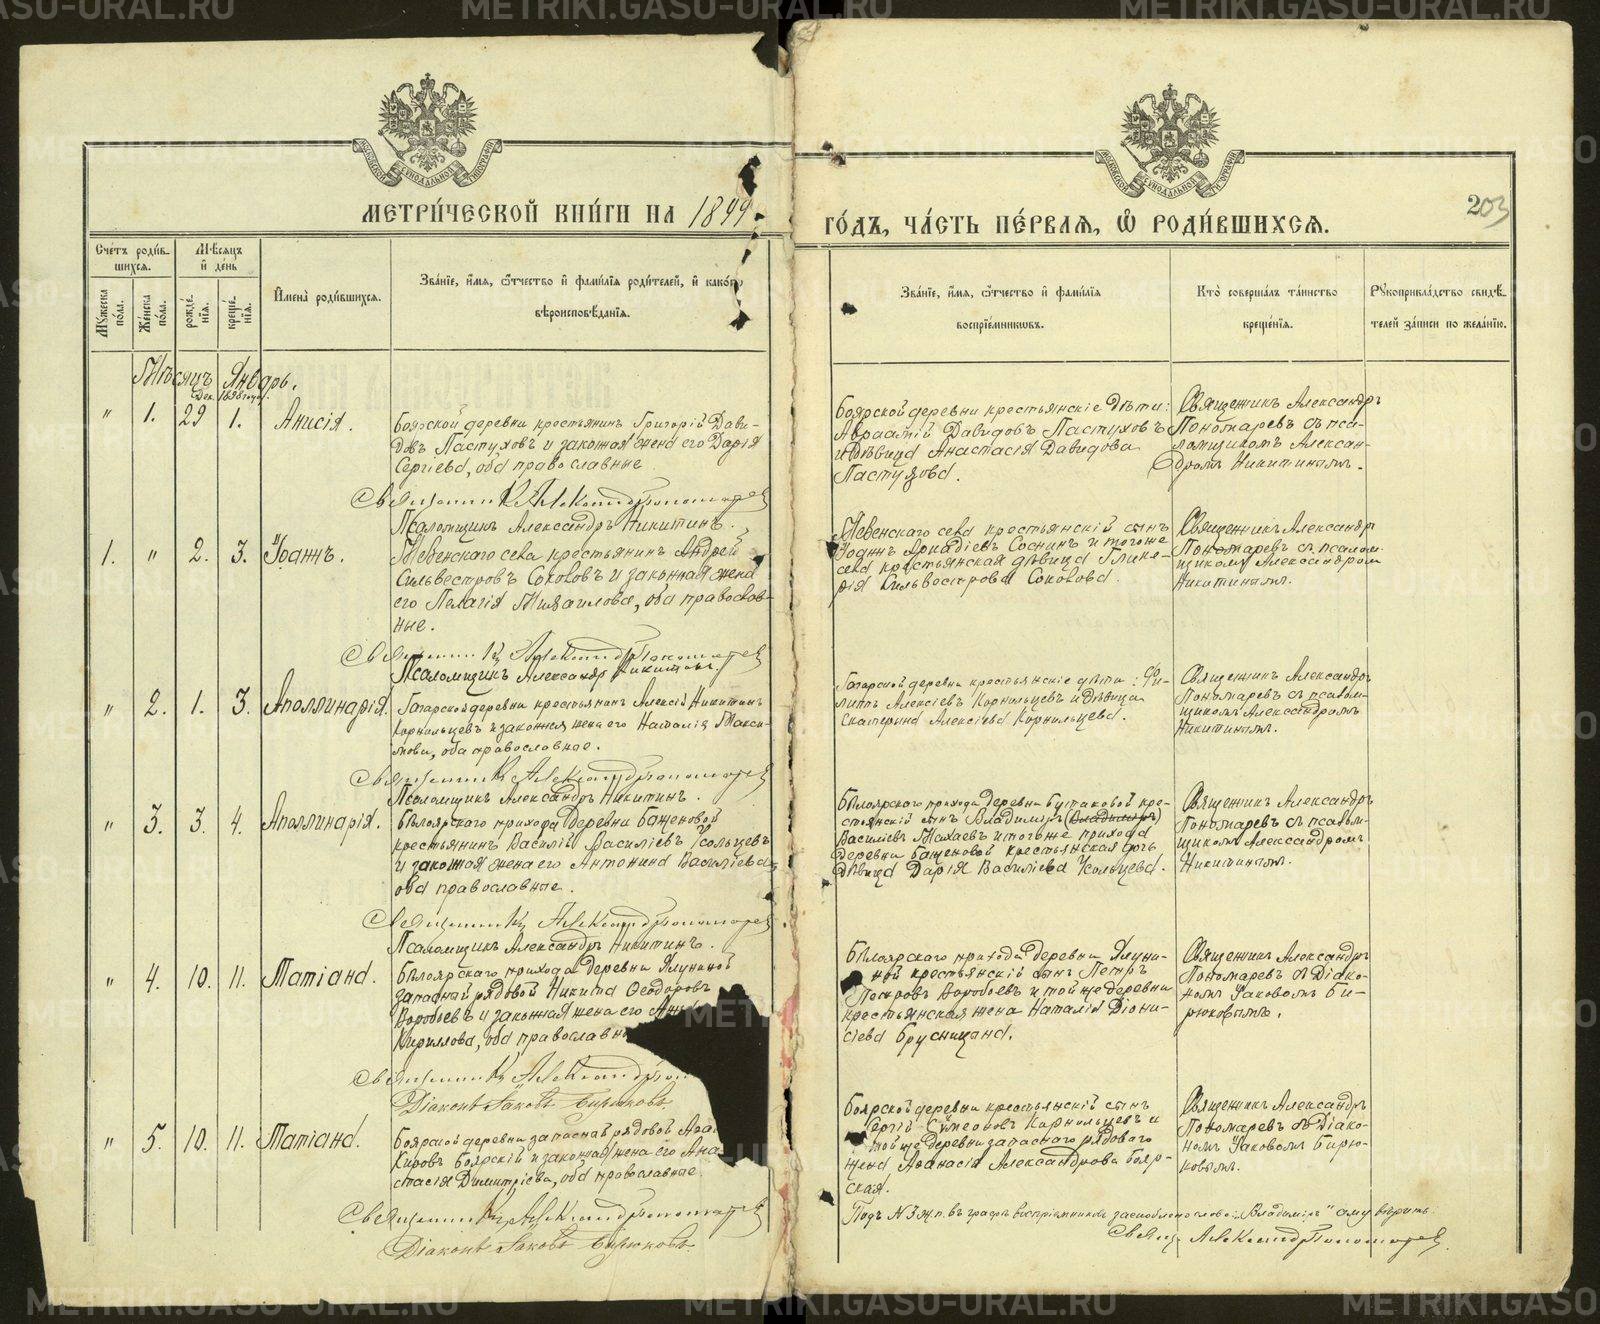 METRIKI.GASU-URAL.RU
МЕТРИ́ЧЕСКОЙ КНИ́ГИ НА 1899
ГО́ДЪ, ЧА́СТЬ ПЕ́РВАЯ, Ѿ РОДИ́ВШИХСЯ.
203
Сче́тъ роди́в-
шихся.
Му́жеска по́ла.
Же́нска по́ла.
Мѣ́сяцъ
и҆ де́нь
рожде́нїя.
креще́нїя.
И҆мена̀ роди́вшихся.
Зва́нїе, и҆́мя, ѻ҆́тчество и҆ фами́лїя роди́телей, и҆ како́гѡ
вѣроисповѣ́данїя.
Зва́нїе, и҆́мя, ѻ҆́тчество и҆ фами́лїя
воспрїе́мникѡвъ.
Кто̀ соверша́лъ та́инство
креще́нїя.
Рꙋкоприкла́дство свидѣ́-
телей за́писи по жела́нїю.
Мѣсяцъ Январь.
Дек. 1898 года.
" 1. 29 1. Анисія.
Боярской деревни крестьянинъ Григорій Дави-
довъ Пастуховъ и законная жена его Дарія
Сергіева, оба православные
Священникъ Александръ Пономаревъ
Псаломщикъ Александръ Никитинъ.
Боярской деревни крестьянскіе дѣти:
Авраамій Давидовъ Пастуховъ
и дѣвица Анастасія Давидова
Пастухова.
Священникъ Александръ
Пономаревъ съ пса-
ломщикомъ Алексан-
дромъ Никитинымъ.
1. " 2. 3. Іоаннъ.
села крестьянинъ Андрей
Сильвестровъ Соколовъ и законная жена
его Пелагія Михаилова, оба православ-
ные.
Священникъ Александръ Пономаревъ
Псаломщикъ Александръ Никитинъ.
села крестьянскій сынъ
Іоаннъ Аркадіевъ Соснинъ и тогоже
села крестьянская дѣвица Глике-
рія Сильвестрова Соколова.
Священникъ Александръ
Пономаревъ съ псалом-
щикомъ Александромъ
Никитинымъ.
" 2. 1. 3. Аполлинарія.
Гагарской деревни крестьянинъ Алексій Никитинъ
Корнильцевъ и законная жена его Наталія Макси-
мова, оба православные.
Священникъ Александръ Пономаревъ
Псаломщикъ Александръ Никитинъ.
Гагарской деревни крестьянскіе дѣти: Фи-
липпъ Алексіевъ Корнильцевъ и дѣвица
Екатерина Алексіева Корнильцева.
Священникъ Александръ
Пономаревъ съ псалом-
щикомъ Александромъ
Никитинымъ.
" 3. 3. 4. Аполлинарія.
Бѣлоярского прихода деревни Баженовой
крестьянинъ Василій Василіевъ Усольцевъ
и законная жена его Антонина Василіева
оба православные.
Священникъ Александръ Пономаревъ
Псаломщикъ Александръ Никитинъ.
Бѣлоярского прихода деревни Бутаковой кре-
стьянскій сынъ Владиміръ (Владиміръ)
Василіевъ и тогоже прихода
деревни Баженовой крестьянская дочь
дѣвица Дарія Василіева Усольцева.
Священникъ Александръ
Пономаревъ съ псалом-
щикомъ Александромъ
Никитинымъ.
" 4. 10. 11. Татіана.
Бѣлоярского прихода деревни Ялуниной
запасный рядовой Никита Ѳеодоровъ
Воробьевъ и законная жена его
Кириллова, оба православн
Священникъ Александръ Поно
Діаконъ Іаковъ Бирюковъ
Бѣлоярского прихода деревни Ялуни-
ной крестьянскій сынъ Петръ
Петровъ Воробьевъ и той же деревни
крестьянская жена Наталія Діони-
сіева Брусницына.
Священникъ Александръ
Пономаревъ съ Діако-
номъ Іаковомъ Би-
рюковымъ.
" 5. 10. 11. Татіана.
Боярской деревни запасный рядовой
Кировъ Боярскій и законная жена его Ана-
стасія Димитріева, оба православные.
Священникъ Александръ Пономаревъ
Діаконъ Іаковъ Бирюковъ
Боярской деревни крестьянскій сынъ
Сергій Сѵмеоновъ Корнильцевъ и
той же деревни запасного рядового
жена Аѳанасія Александрова Бояр-
ская.
Священникъ Александръ
Пономаревъ съ Діако-
номъ Іаковомъ Бирю-
ковымъ.
Подъ № 3 ж.п. въ графѣ воспріемниковъ слово: „Владиміръ" вѣрить.
Священ. Александръ Пономаревъ.